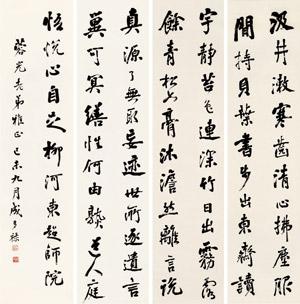 汲井漱寒齒清心拂塵服
閒持貝葉書步出東齋讀
宇靜苔色連深竹日出霧露
餘青松如膏沐澹然離言說
真源了無取妄迹世所逐遺言
冀可冥繕性何由熟道人庭
悟悅心自足柳河東超師院
蓉光老弟雅正己未九月成多祿